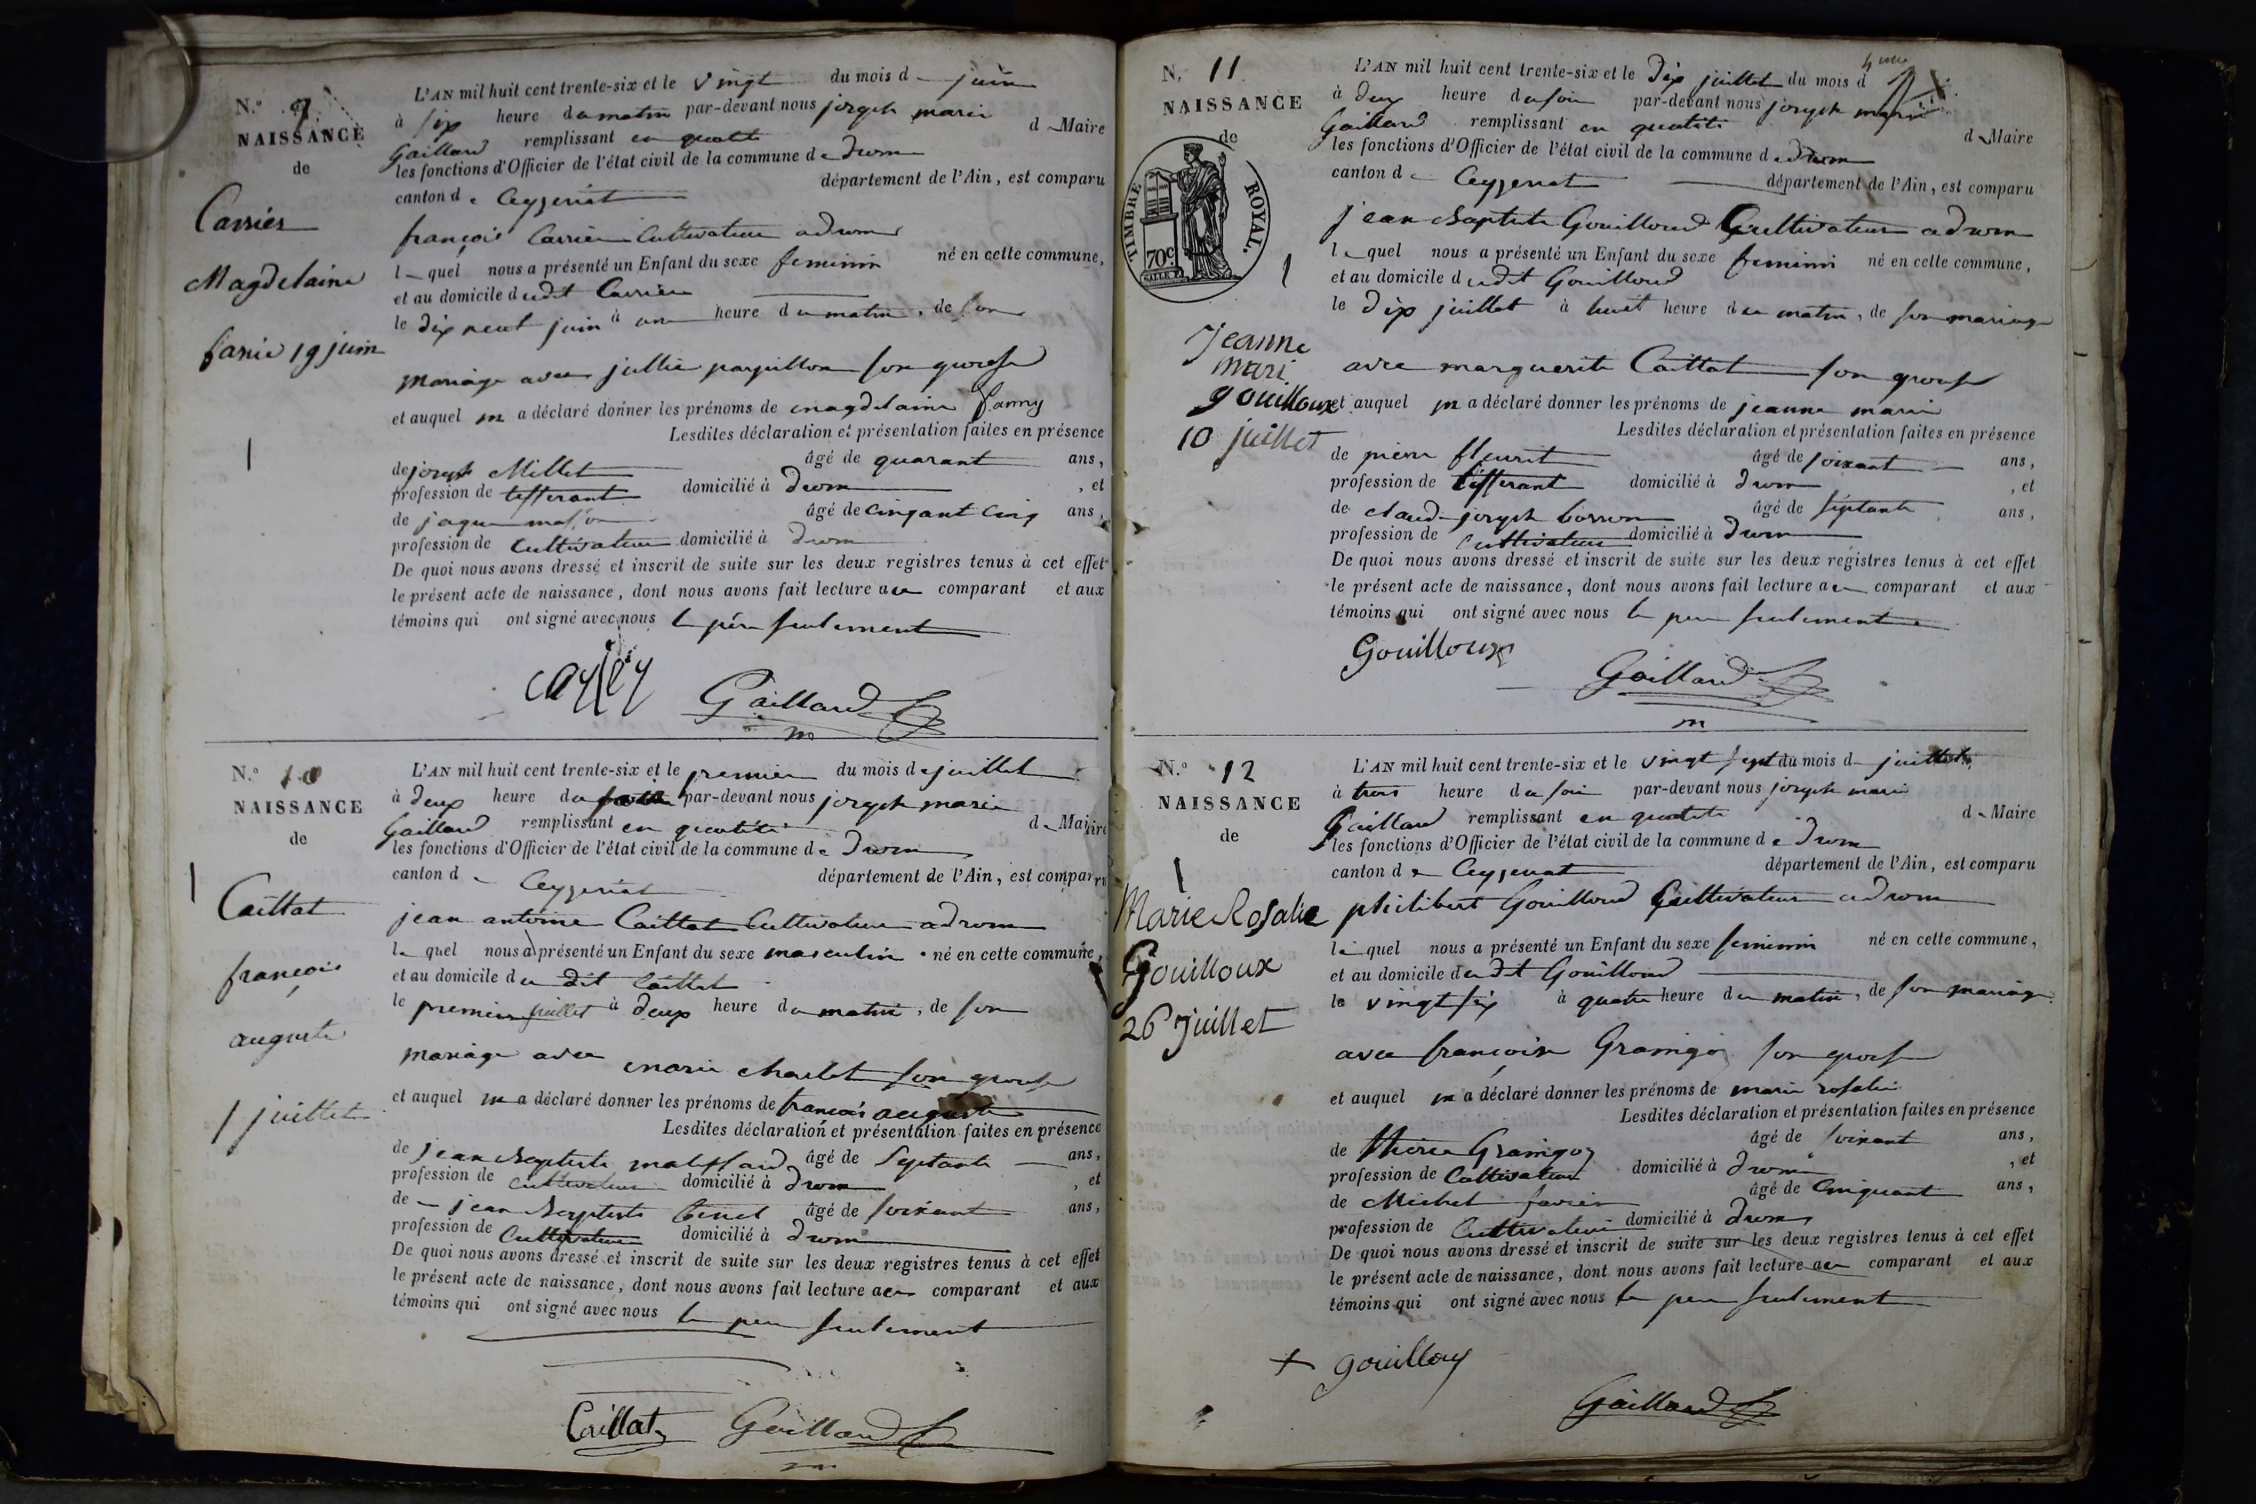 N.° 9
NAISSANCE
de
Carrier
Magdelaine
fanie 19 juin
L'AN mil huit cent trente-six et le vingt du mois d juin
à six heure du matin par-devant nous joseph marie
Gaillard remplissant en qualité d Maire
les fonctions d'Officier de l'état civil de la commune de drom
canton de Ceyzeriat département de l'Ain, est comparu
françois Carrier Cultivateur a drom
le quel nous a présenté un Enfant du sexe feminin né en cette commune,
et au domicile dudit Carrier
le dix neuf juin à une heure du matin, de son
mariage avec jullie papillon son epouse
et auquel il a déclaré donner les prénoms de magdelaine fanny
Lesdites déclaration et présentation faites en présence
de joseph Millet âgé de quarant ans,
profession de tisserant domicilié à drom, et
de jaque âgé de cinqant cinq ans,
profession de Cultivateur domicilié à drom
De quoi nous avons dressé et inscrit de suite sur les deux registres tenus à cet effet
le présent acte de naissance, dont nous avons fait lecture au comparant et aux
témoins qui ont signé avec nous le père seulement
Gaillard
N.° 10
NAISSANCE
de
Caillat
françois
auguste
1 juillet
L'AN mil huit cent trente-six et le premier du mois de juillet
à deux heure du par-devant nous joseph marie
Gaillard remplissant en qualité de Maire
les fonctions d'Officier de l'état civil de la commune de Drom
canton d Ceyzeriat département de l'Ain, est comparu
jean antoine Caillat Cultivateur a drom
le quel nous a présenté un Enfant du sexe masculin né en cette commune,
et au domicile du dit Caillat
le premier juillet à deux heure du matin, de son
mariage avec marie charlet son epouse
et auquel il a déclaré donner les prénoms de francois auguste
Lesdites déclaration et présentation faites en présence
de jean Baptiste âgé de Septante ans,
profession de cultivateur domicilié à drom, et
de jean Baptiste âgé de soixant ans,
profession de Cultivateur domicilié à drom
De quoi nous avons dressé et inscrit de suite sur les deux registres tenus à cet effet
le présent acte de naissance, dont nous avons fait lecture au comparant et aux
témoins qui ont signé avec nous le per seulement
Caillat Gaillard
N. 11
NAISSANCE
de
TIMBRE ROYAL.
70c.
Jeanne
mari
gouilloux
10 juillet
L'AN mil huit cent trente-six et le Dix juillet du mois d
à deux heure du soir par-devant nous joseph marie
Gaillard remplissant en qualité d Maire
les fonctions d'Officier de l'état civil de la commune de drom
canton d Ceyzeriat département de l'Ain, est comparu
jean Baptiste Gouilloud Cultivateur a drom
le quel nous a présenté un Enfant du sexe feminin né en cette commune,
et au domicile dudit Gouilloud
le dix juillet à huit heure du matin, de son mariage
avec marguerite Caillat son epouse
et auquel il a déclaré donner les prénoms de jeanne marie
Lesdites déclaration et présentation faites en présence
de pierre fleurit âgé de soixant ans,
profession de tisserant domicilié à drom, et
de claude joseph borron âgé de septante ans,
profession de Cultivateur domicilié à drom
De quoi nous avons dressé et inscrit de suite sur les deux registres tenus à cet effet
le présent acte de naissance, dont nous avons fait lecture au comparant et aux
témoins qui ont signé avec nous le per seulement
Gouilloux
Gaillard
N.° 12
NAISSANCE
de
Marie Rosalie
Gouilloux
26 Juillet
L'AN mil huit cent trente-six et le vingt sept du mois d juillet
à trois heure du soir par-devant nous joseph marie
Gaillard remplissant en qualité d Maire
les fonctions d'Officier de l'état civil de la commune de drom
canton de Ceyzeriat département de l'Ain, est comparu
philibert Gouilloud Cultivateur a drom
le quel nous a présenté un Enfant du sexe feminin né en cette commune,
et au domicile dudit Gouilloud
le vingt six à quatre heure du matin, de son mariage
avec françoise Graingoy son epouse
et auquel il a déclaré donner les prénoms de marie rosalie
Lesdites déclaration et présentation faites en présence
de Graingoy âgé de soixant ans,
profession de Cultivateur domicilié à drom, et
de Michel favier âgé de cinquant ans,
profession de Cultivateur domicilié à drom
De quoi nous avons dressé et inscrit de suite sur les deux registres tenus à cet effet
le présent acte de naissance, dont nous avons fait lecture au comparant et aux
témoins qui ont signé avec nous le per seulement
+ gouilloux
Gaillard